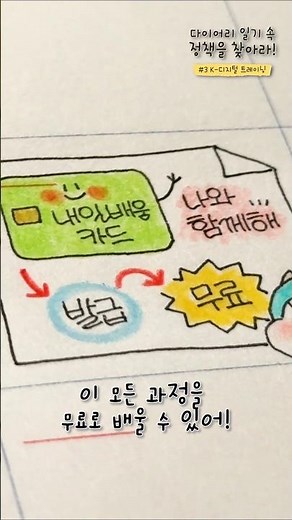 다이어리 일기 속
정책을 찾아라!
#3 K-디지털 트레이닝
내일배움
카드
나와
함께해
발급
무료
이 모든 과정을
무료로 배울 수 있어!